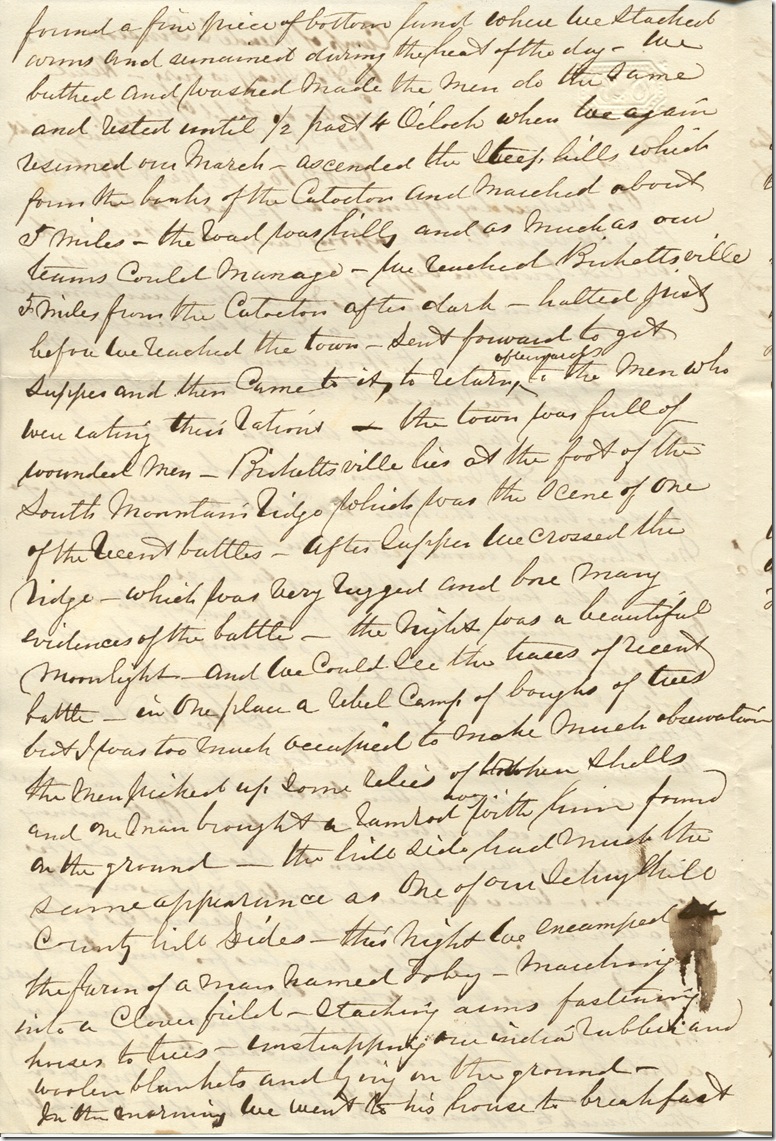 found a fine piece of bottom land where we stacked
arms and remained during the heat of the day – We
bathed and washed made the men do the same
and rested until 1/2 past 4 O'Cloch when we again
resumed our March – ascended the Steep hills which
form the banks of the Catocton and Marched about
5 Miles – the road was hilly and as much as our
teams could manage – We reached Birkettsville
5 miles from the Catocton after dark – halted just
before we reached the town – Sent forward to get
supper and then Came to it, to return afterwards to the Men who
were eating their rations – the town was full of
wounded men – Birkettsville lies at the foot of the
South Mountain ridge which was the Scene of one
of the recent battles – After Supper we crossed the
ridge – which was very rugged and bore many
evidences of the battle – the Night was a beautiful
Moonlight – and we could See the traces of recent
battle – in One place a rebel Camp of boughs of trees
but I was too much occupied to make Much observation
the Men picked up some relics of broken Shells
and one man brought a ramrod with him found
on the ground – the hill side had much the
same appearance as One of our Schuylkill
County hill Sides – this Night we encamped
the farm of a man named – Marching
into a Clover field – Stacking arms fastening
horses to trees – unstrapping our india rubber and
woolen blankets and lying on the ground –
In the morning we went to his house to breakfast